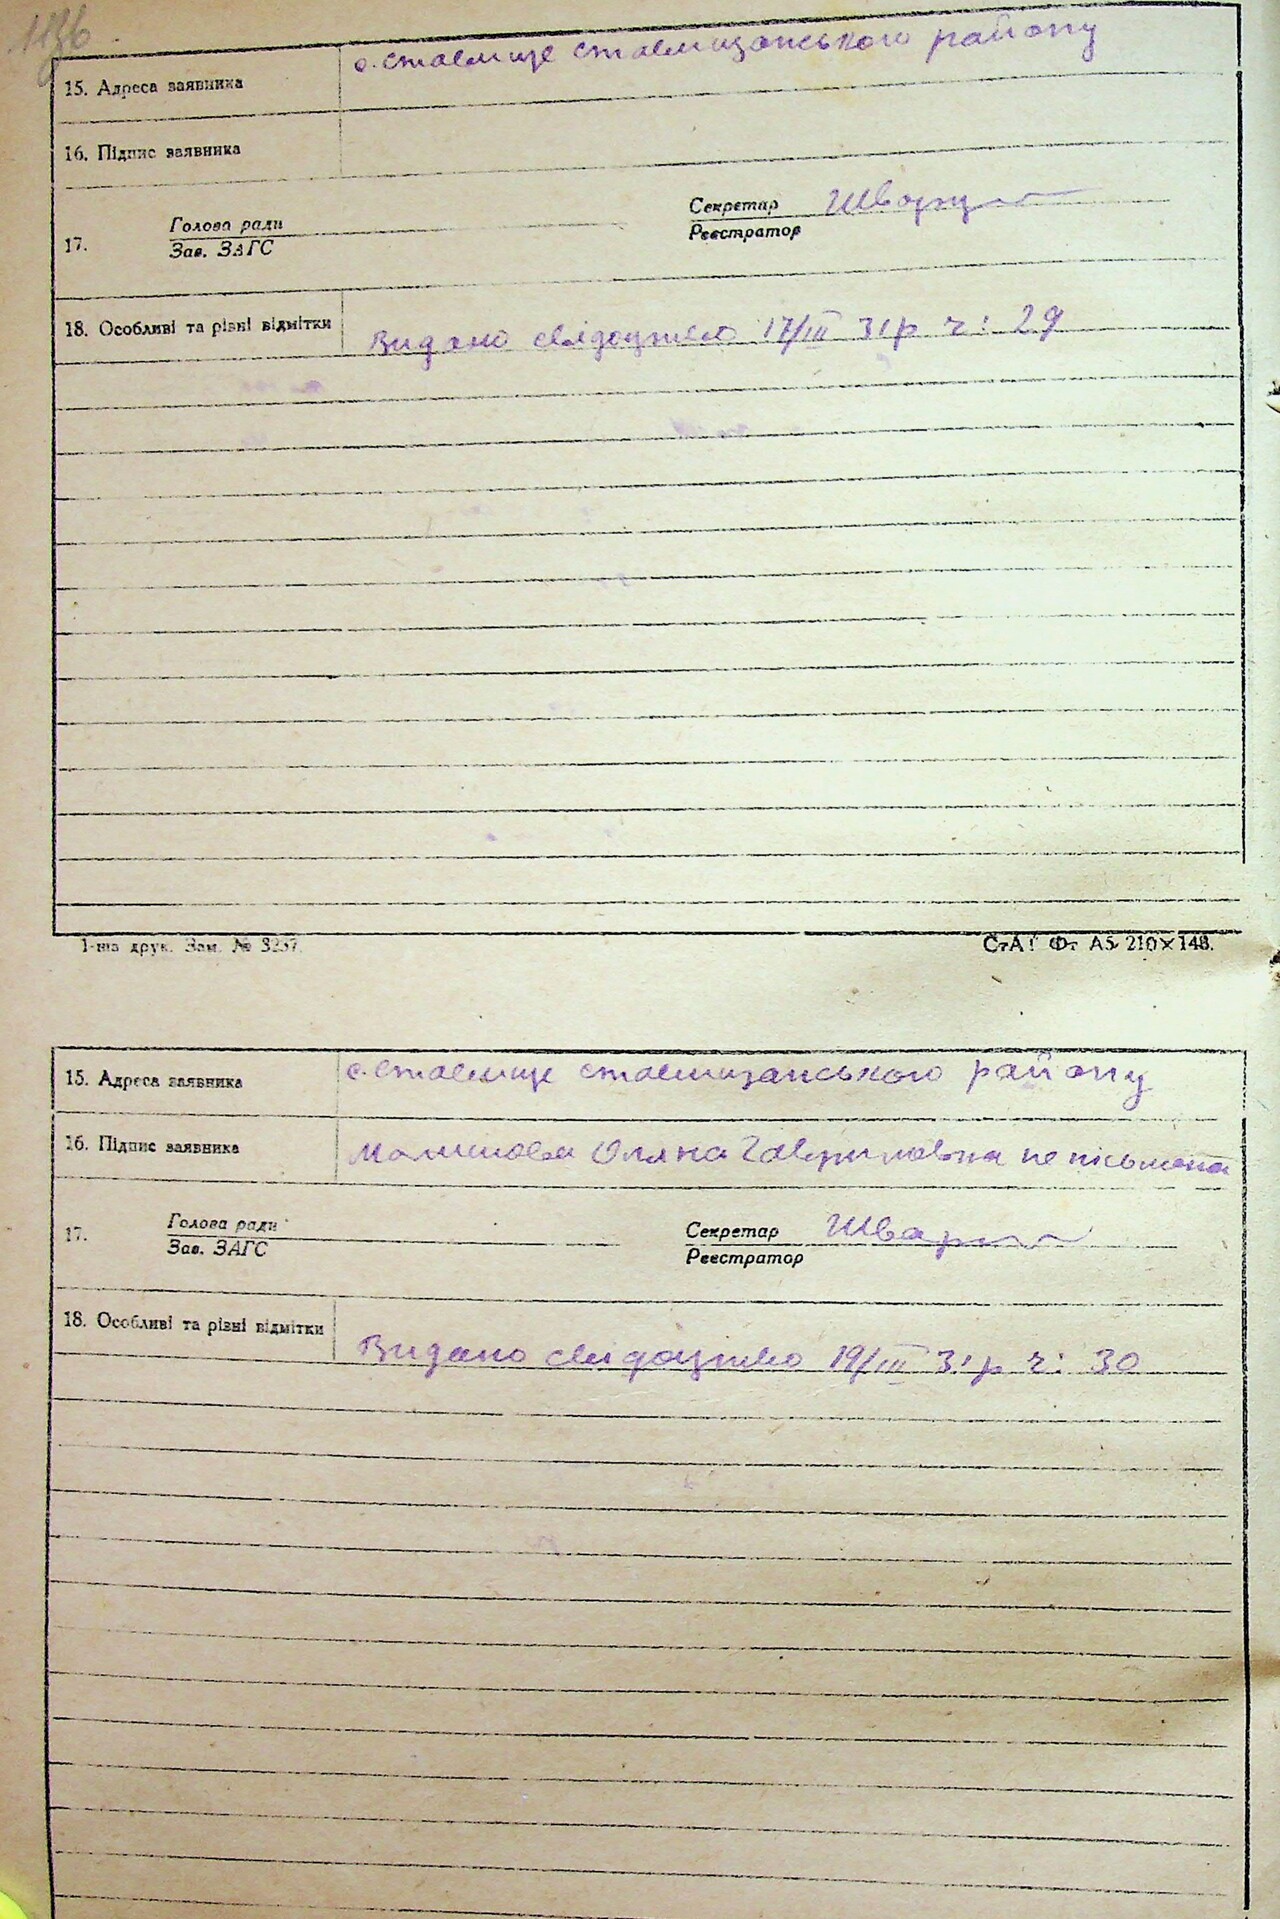 с. ставище ставищанського району
15. Адреса заявника
16. Підпис заявника
Голова ради
Секретар
17.
Зав. ЗАГС
Реєстратор
18. Особливі та різні відмітки
Видано свідоцтво 17/III 31р ч: 29
1-ша друк. Зам. № 3257.
Фт А5 210×148.
15. Адреса заявника с. ставище ставищанського району
16. Підпис заявника Оляна Гавриловна не пісьмена
Голова ради Секретар
17.
Зав. ЗАГС Реєстратор
18. Особливі та різні відмітки
Видано свідоцтво 19/III 31р ч: 30